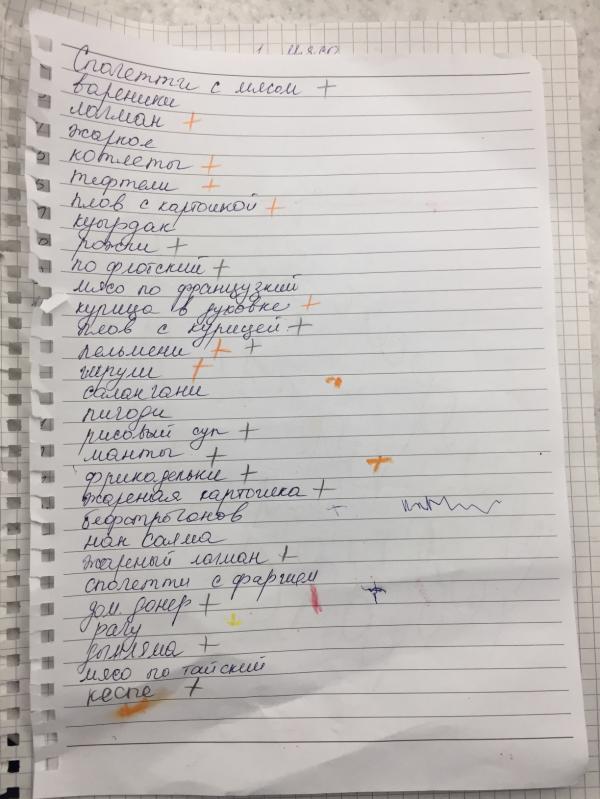 Спогетти с мясом +
вареники
лагман +
жаркое
котлеты +
тефтели +
плов с картошкой +
куырдак
рожки +
по флотский +
мясо по французкий
курица в духовке +
плов с курицей +
пельмени + +
салангани
пигоди
рисовый суп +
манты +
фрикадельки +
жареная картошка +
бефстроганов
нан салма
жареный лагман +
спогетти с фаршем
дом донер +
рагу
дымляма +
мясо по тайский
кеспе +